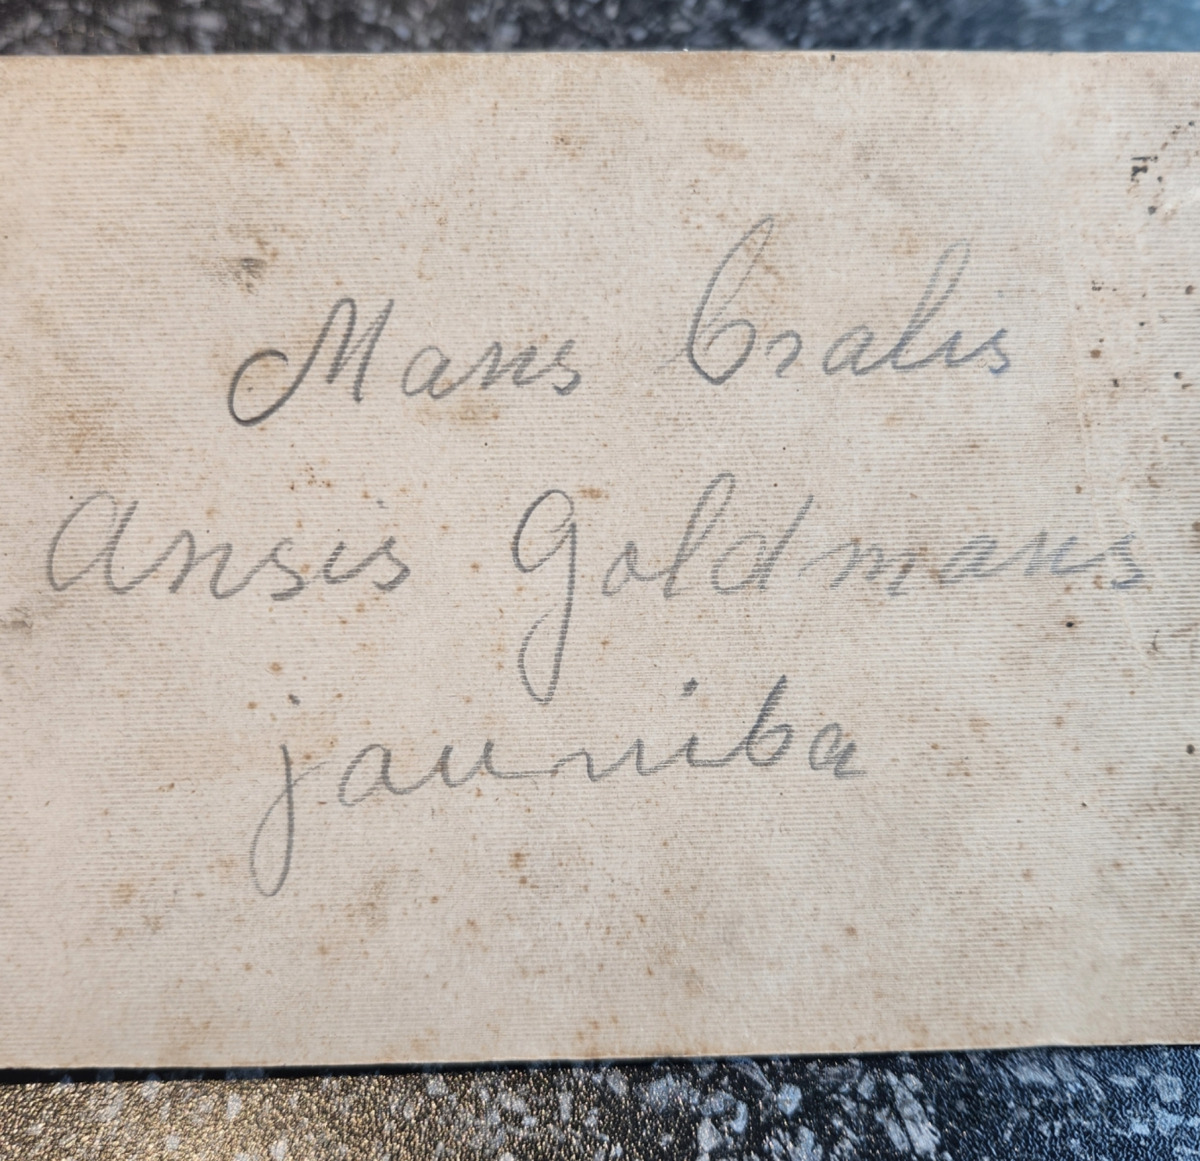 Mans bralis
Ansis Goldmans
jauniba